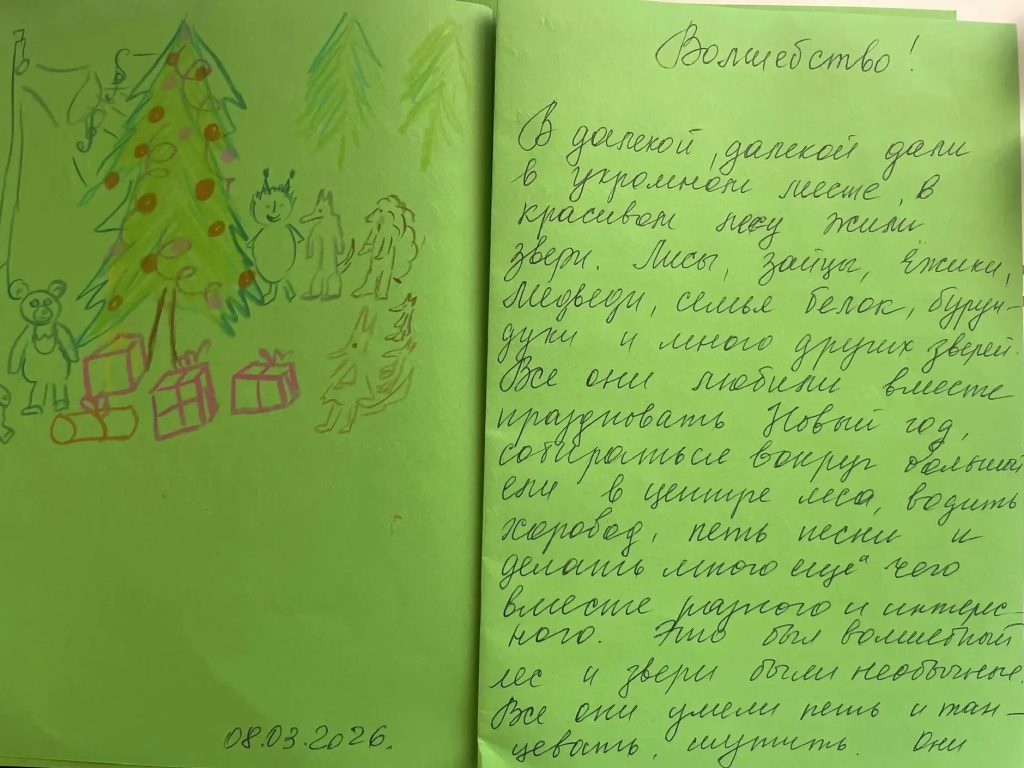 08.03.2026.
Волшебство!
В далекой, далекой дали
в укромном месте, в
красивом лесу жили
звери. Лисы, зайцы, Ёжики,
медведи, семья белок, бурун-
дуки и много других зверей.
Все они любили вместе
праздновать Новый год,
собираться вокруг большой
ели в центре леса, водить
хоровод, петь песни и
делать много ещё чего
вместе разного и интерес-
ного. Это был волшебный
лес и звери были необычные.
Все они умели петь и тан-
цевать, шутить. Они